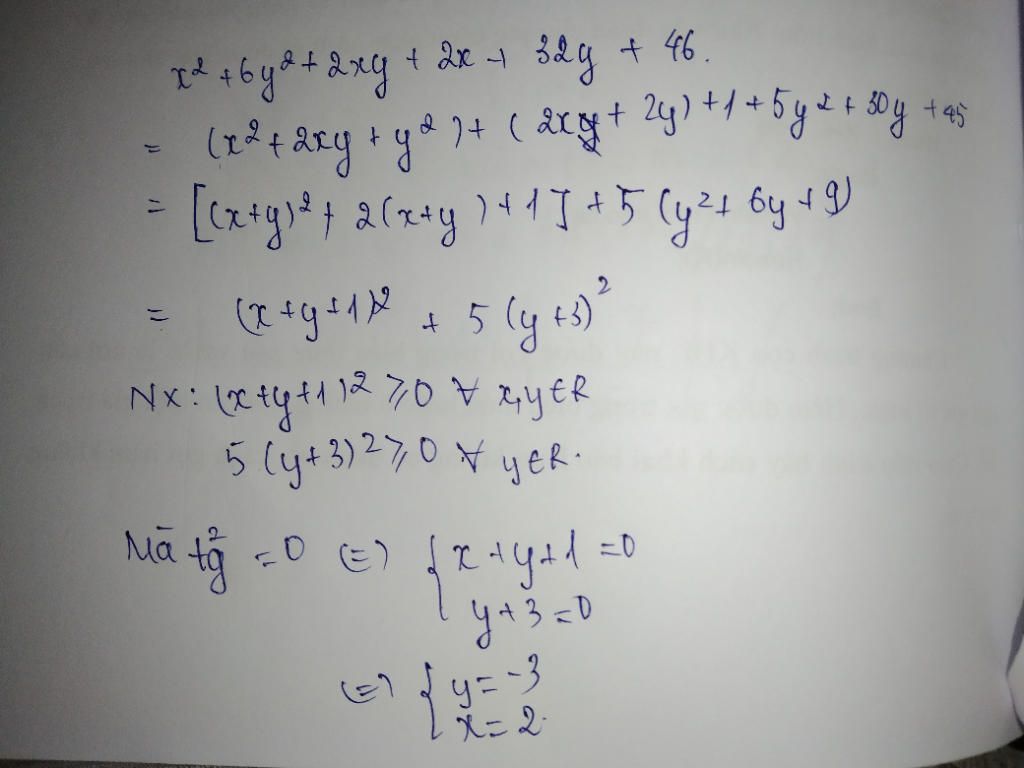 x² + 6y² + 2xy + 2x + 32y + 46.
= (x² + 2xy + y²) + (2x + 2y) + 1 + 5y² + 30y + 45
= [(x+y)² + 2(x+y) + 1] + 5(y² + 6y + 9)
= (x+y+1)² + 5(y+3)²
Nx: (x+y+1)² ≥ 0 ∀ x,y ∈ R
5(y+3)² ≥ 0 ∀ y ∈ R.
Mà tg² = 0 (=) { x+y+1 = 0
y+3 = 0
(=) { y = -3
x = 2.